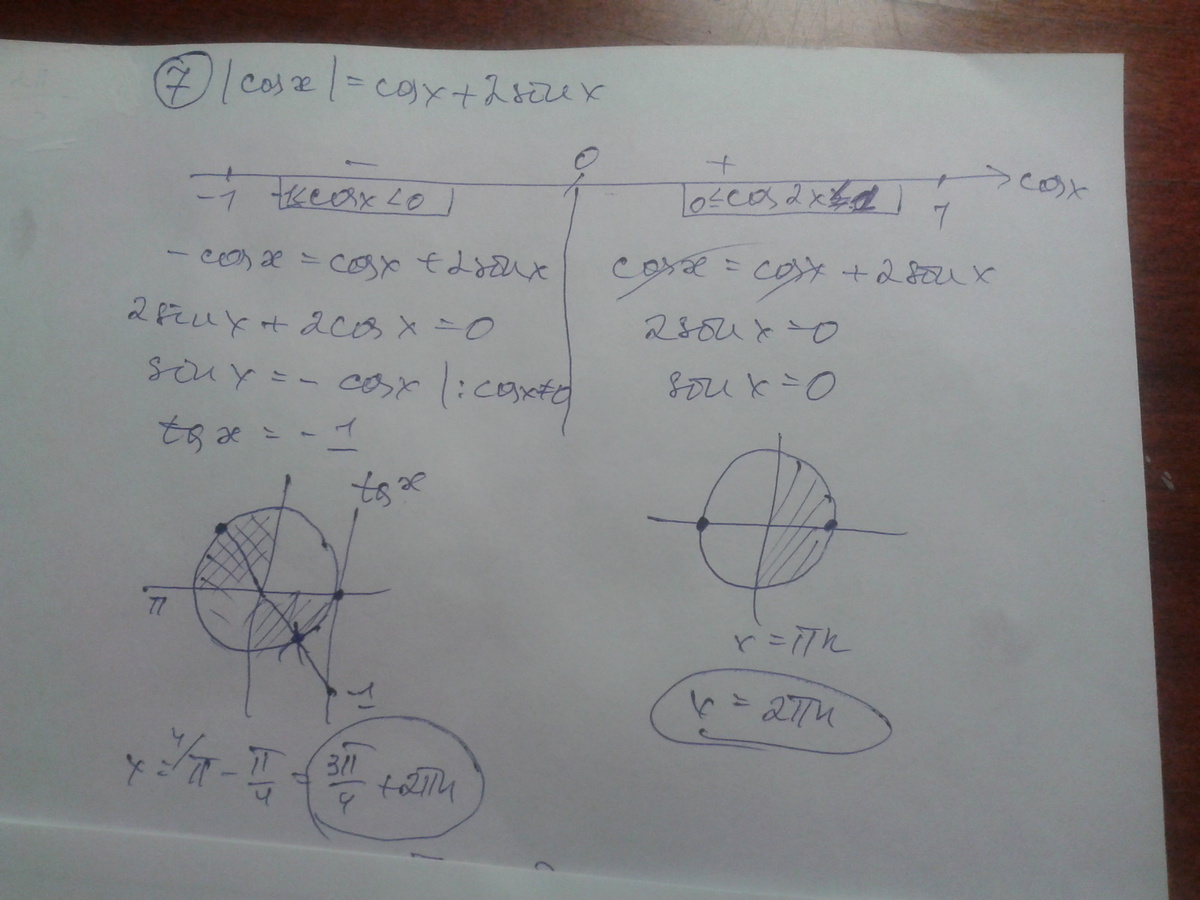 ⑦ |cos x| = cos x + 2 sin x
− 0 +
-1 -1≤cosx<0 0≤cos2x≤1 1 cosx
-cos x = cos x + 2 sin x
2 sin x + 2 cos x = 0
sin x = - cos x |: cosx≠0
tg x = - 1
cos x = cos x + 2 sin x
2 sin x = 0
sin x = 0
tg x
π
-1
x = π - π/4 = 3π/4 + 2πn
x = πn
x = 2πn